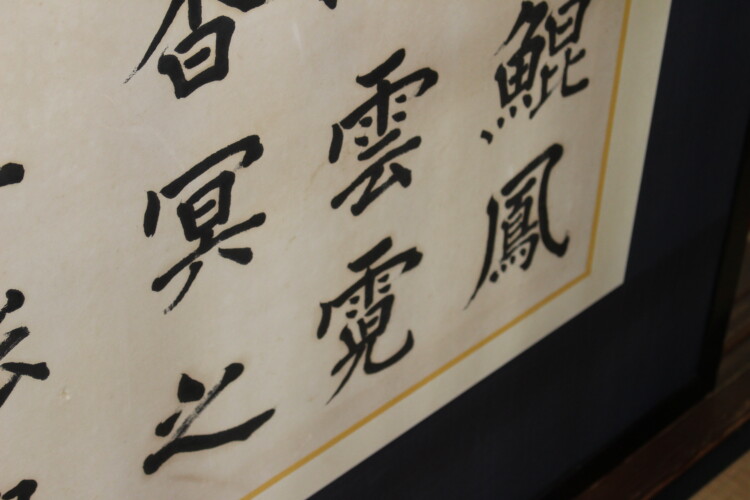 鯤鳳
雲霓
杳冥之